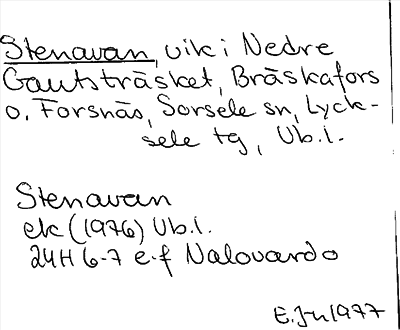 Stenavan, vik i Nedre
Gautsträsket, Bräskafors
o. Forsnäs, Sorsele sn, Lyck-
sele tg, Vb.l.
Stenavan
ek (1976) Vb.l.
24H 6-7 e-f Nalovardo
E.Jn 1977